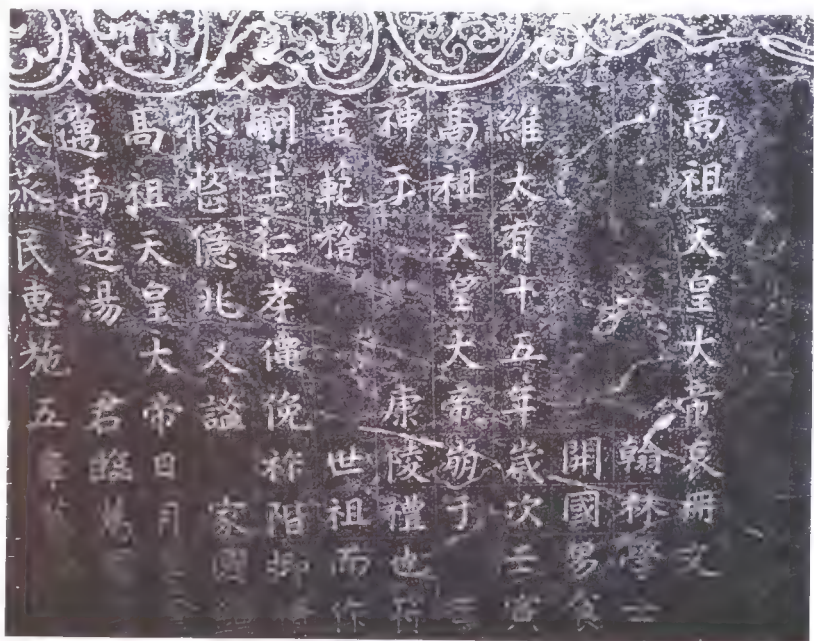 高祖天皇大帝哀冊文
翰林學士
開國男食
維大有十五年歲次壬寅
高祖天皇大帝崩于
神于 康陵禮也符
垂範稽 世祖而作
嗣主仁孝僶俛祚階抑
億兆乂謐 家國
高祖天皇大帝日月
邁禹超湯 君臨萬
牧烝民惠施五